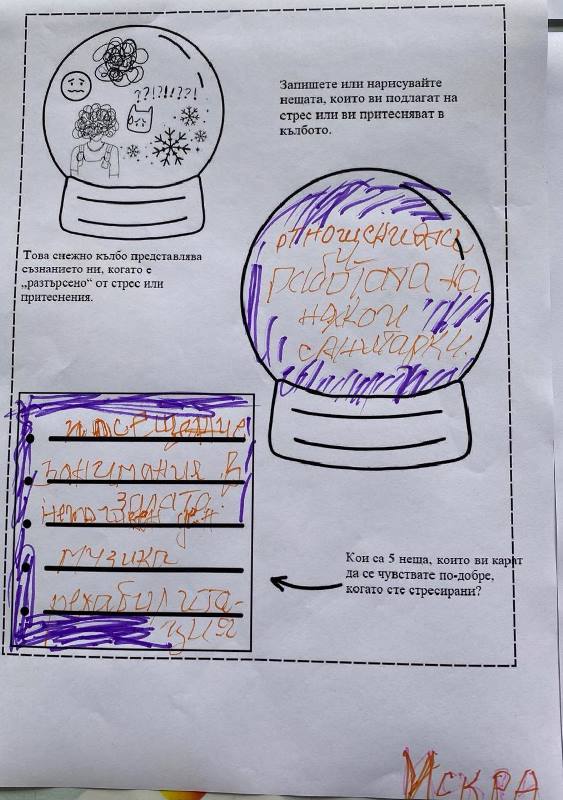 ??!!!??!
Запишете или нарисувайте
нещата, които ви подлагат на
стрес или ви притесняват в
кълбото.
Това снежно кълбо представлява
съзнанието ни, когато е
„разтърсено“ от стрес или
притеснения.
работата на
някои
санитарки.
посещение
занимания в
залата
музика
рехабилита-
ция
Кои са 5 неща, които ви карат
да се чувствате по-добре,
когато сте стресирани?
Искра